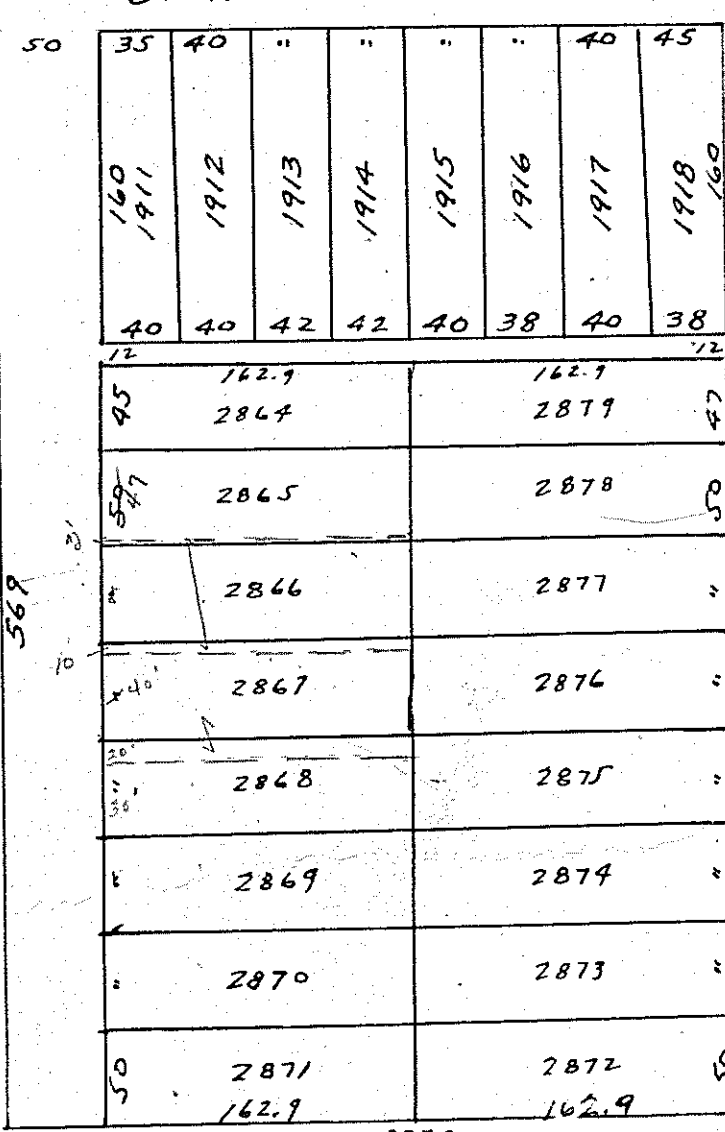 50 35 40 " " " " 40 45
160 1911 1912 1913 1914 1915 1916 1917 1918 160
40 40 42 42 40 38 40 38
12 12
162.9 162.9
45 2864 2879 47
50 47 2865 2878 50
3'
" 2866 2877 "
569
10
40' 2867 2876 "
20'
" 2868 2875 "
30'
2869 2874 "
" 2870 2873 "
50 2871 2872
162.9 162.9